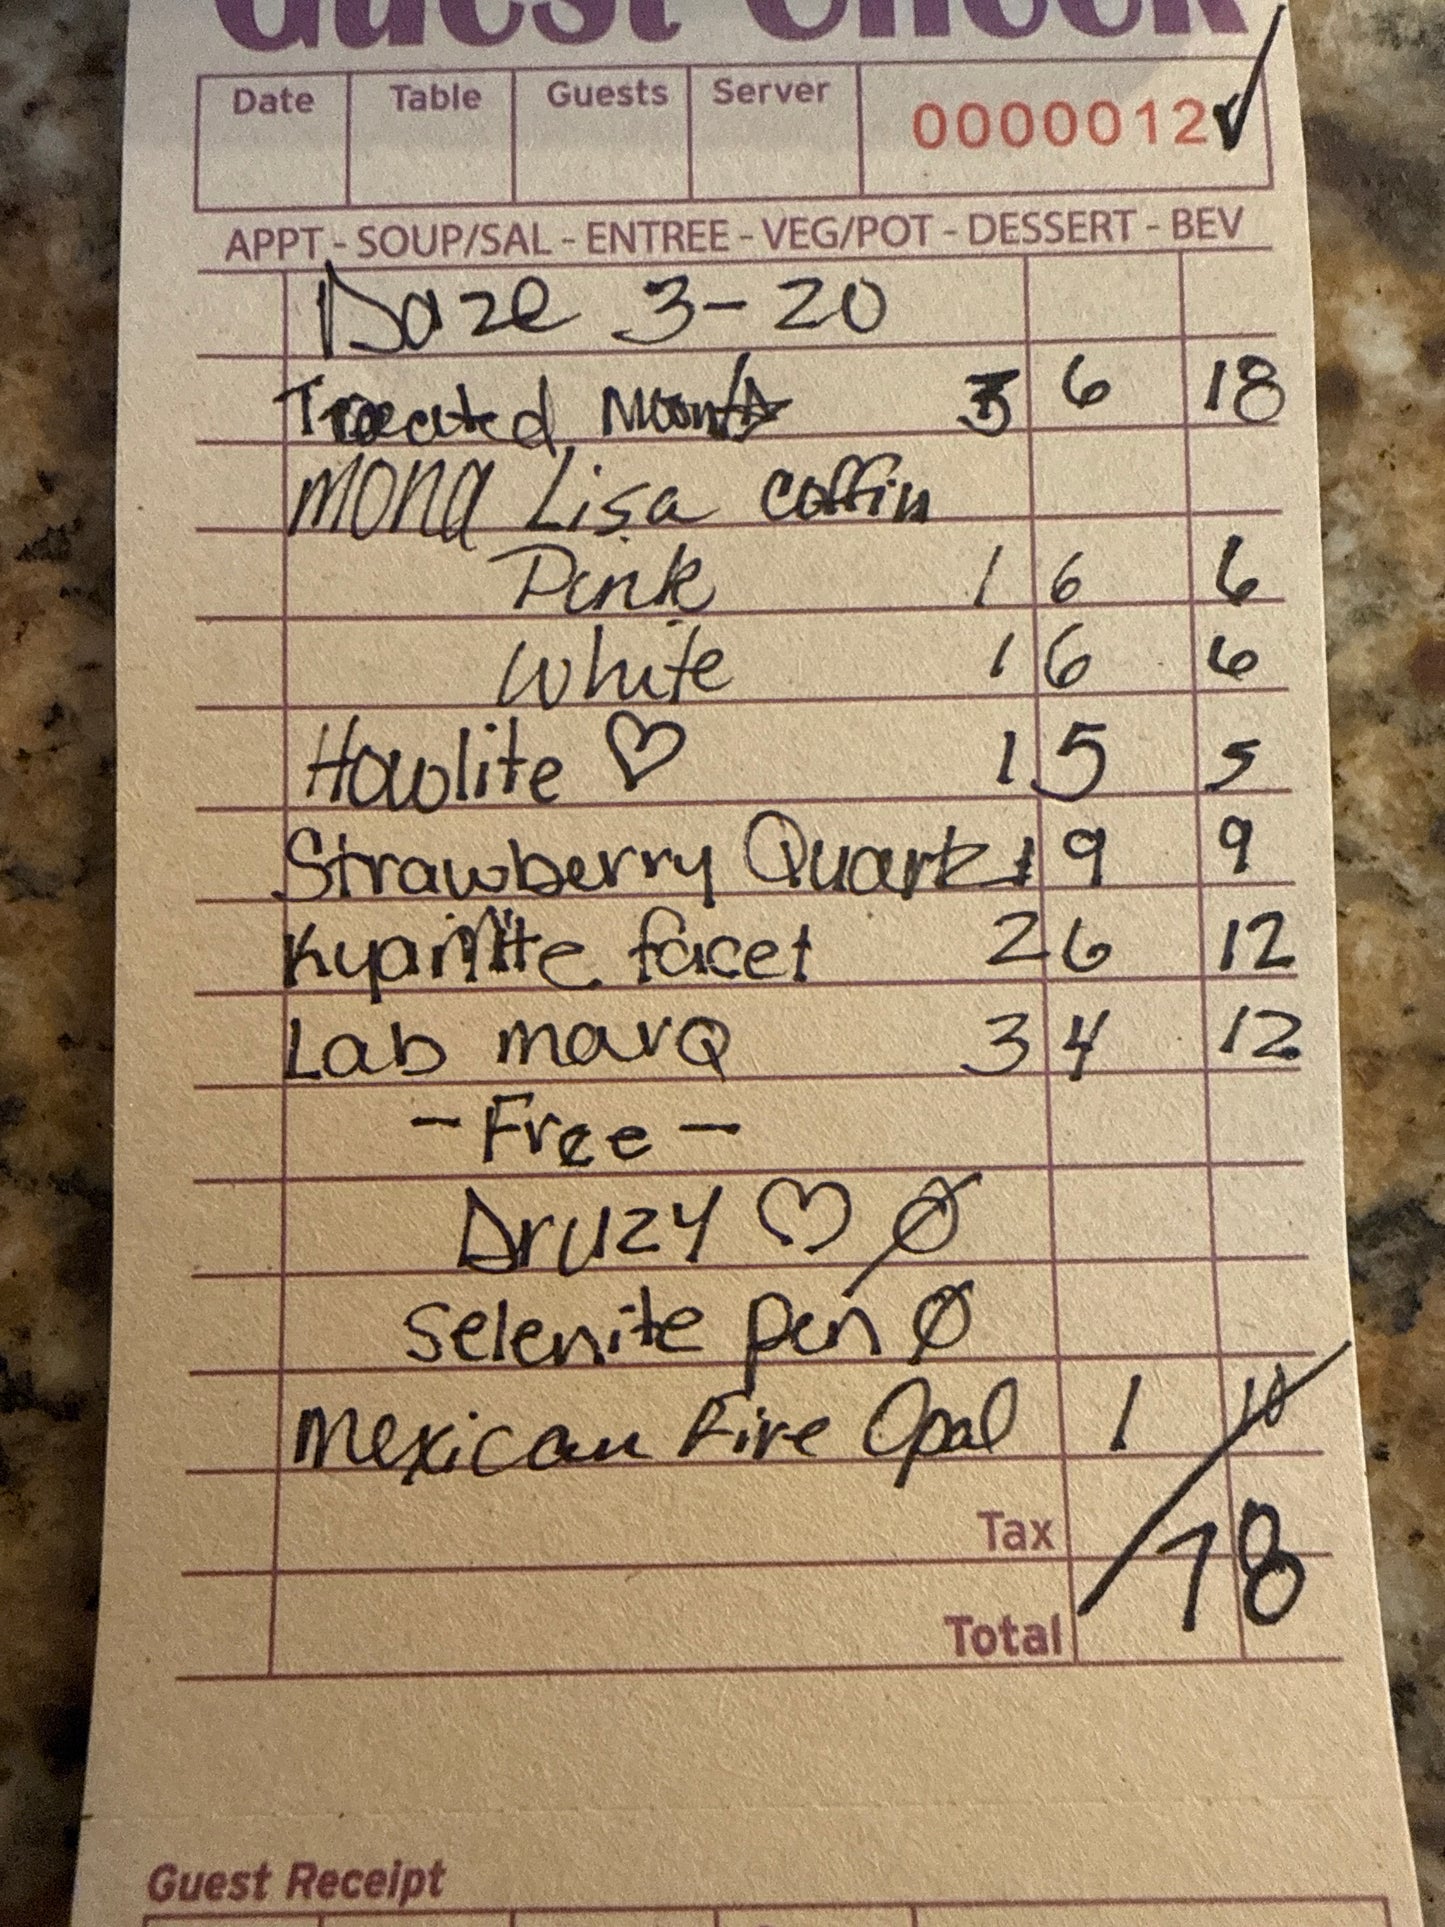 Guest Check
Date Table Guests Server 0000012
APPT - SOUP/SAL - ENTREE - VEG/POT - DESSERT - BEV
Daze 3-20
Treated 3 6 18
Mona Lisa coffin
Pink 1 6 6
White 1 6 6
Howlite ♡ 1 5 5
Strawberry Quartz 1 9 9
Kyanite facet 2 6 12
Lab marQ 3 4 12
- Free -
Druzy ♡ Ø
Selenite pen Ø
Mexican Fire Opal 1 10
Tax
78
Total
Guest Receipt